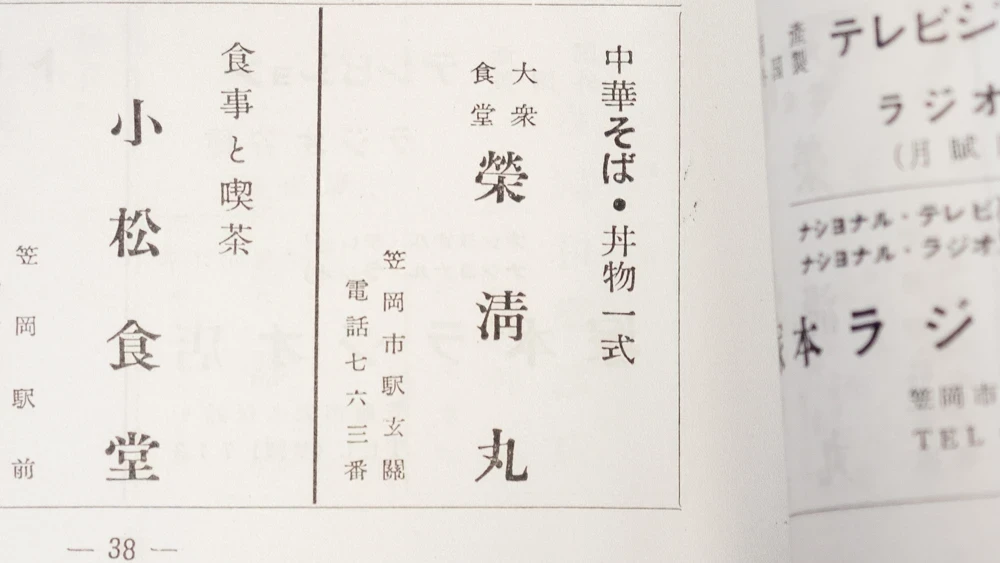 テレビジ
ラジオ
(月賦
ナショナル・テレビ
ナショナル・ラジオ
本ラジ
笠岡市
TEL
中華そば・丼物一式
大衆
食堂
榮清丸
笠岡市駅玄關
電話七六三番
食事と喫茶
小松食堂
笠岡駅前
— 38 —